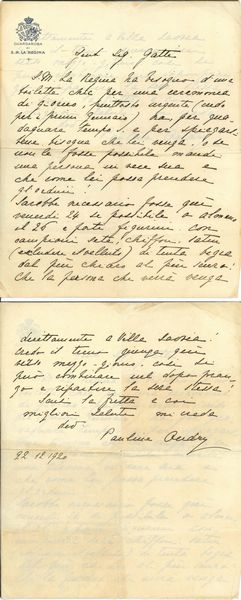 GUARDAROBA
DI
S.M. LA REGINA
Gent Sig Gatti
S. M. La Regina ha bisogno d'una
toilette chic per una cerimonia
di giorno, piuttosto urgente (credo
pei primi Gennaio) ma per gua-
dagnare tempo, e per spiegarsi
bene bisogna che lei venga, o se
non le fosse possibile, mandi
una persona in vece sua e
che come lei possa prendere
gl'ordini!
Sarebbe necessario fosse qui
venerdi 24 se possibile o almeno
il 26 e porti figurini con
campioni seta, chiffon, satin
(escludere velluto) di tinta beige
dal più chiaro al più scuro!
Che la persona che verrà venga
direttamente a Villa Savoia!
Credo il treno giunga qui
sulle mezzogiorno, così si
può combinare nel dopo pran-
zo e ripartire la sera stessa!
Scusi la fretta e coi
migliori saluti mi creda
Paulina
22.12.1920